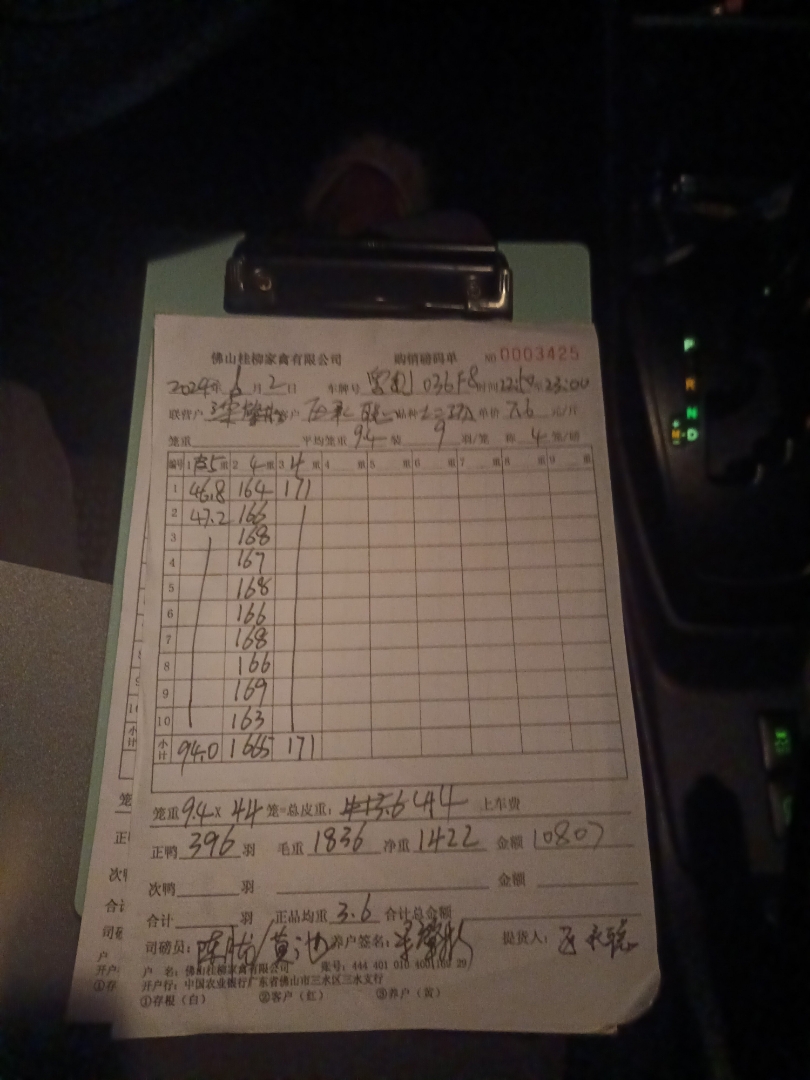 佛山桂柳家禽有限公司 购销磅码单 NO 0003425
2024年6月2日 车牌号 036F8 时间 至23:00
联营户 客户 品种 单价 7.6 元/斤
笼重 平均笼重 9.4 装 9 羽/笼 称 4 笼/磅
编号 1 重 2 4 重 3 4 重 4 重 5 重 6 重 7 重 8 重 9 重
1 46.8 164 171
2 47.2 166
3 168
4 167
5 168
6 166
7 168
8 166
9 169
10 163
小计 94.0 1665 171
笼重 9.4 X 44 笼=总皮重: 414 上车费
正鸭 396 羽 毛重 1836 净重 1422 金额 10807
次鸭 羽 金额
合计 羽 正品均重 3.6 合计总金额
司磅员: 养户签名: 提货人:
户 名: 佛山桂柳家禽有限公司 账号: 444 401 010 400
开户行: 中国农业银行广东省佛山市三水区三水支行
①存根(白) ②客户(红) ③养户(黄)